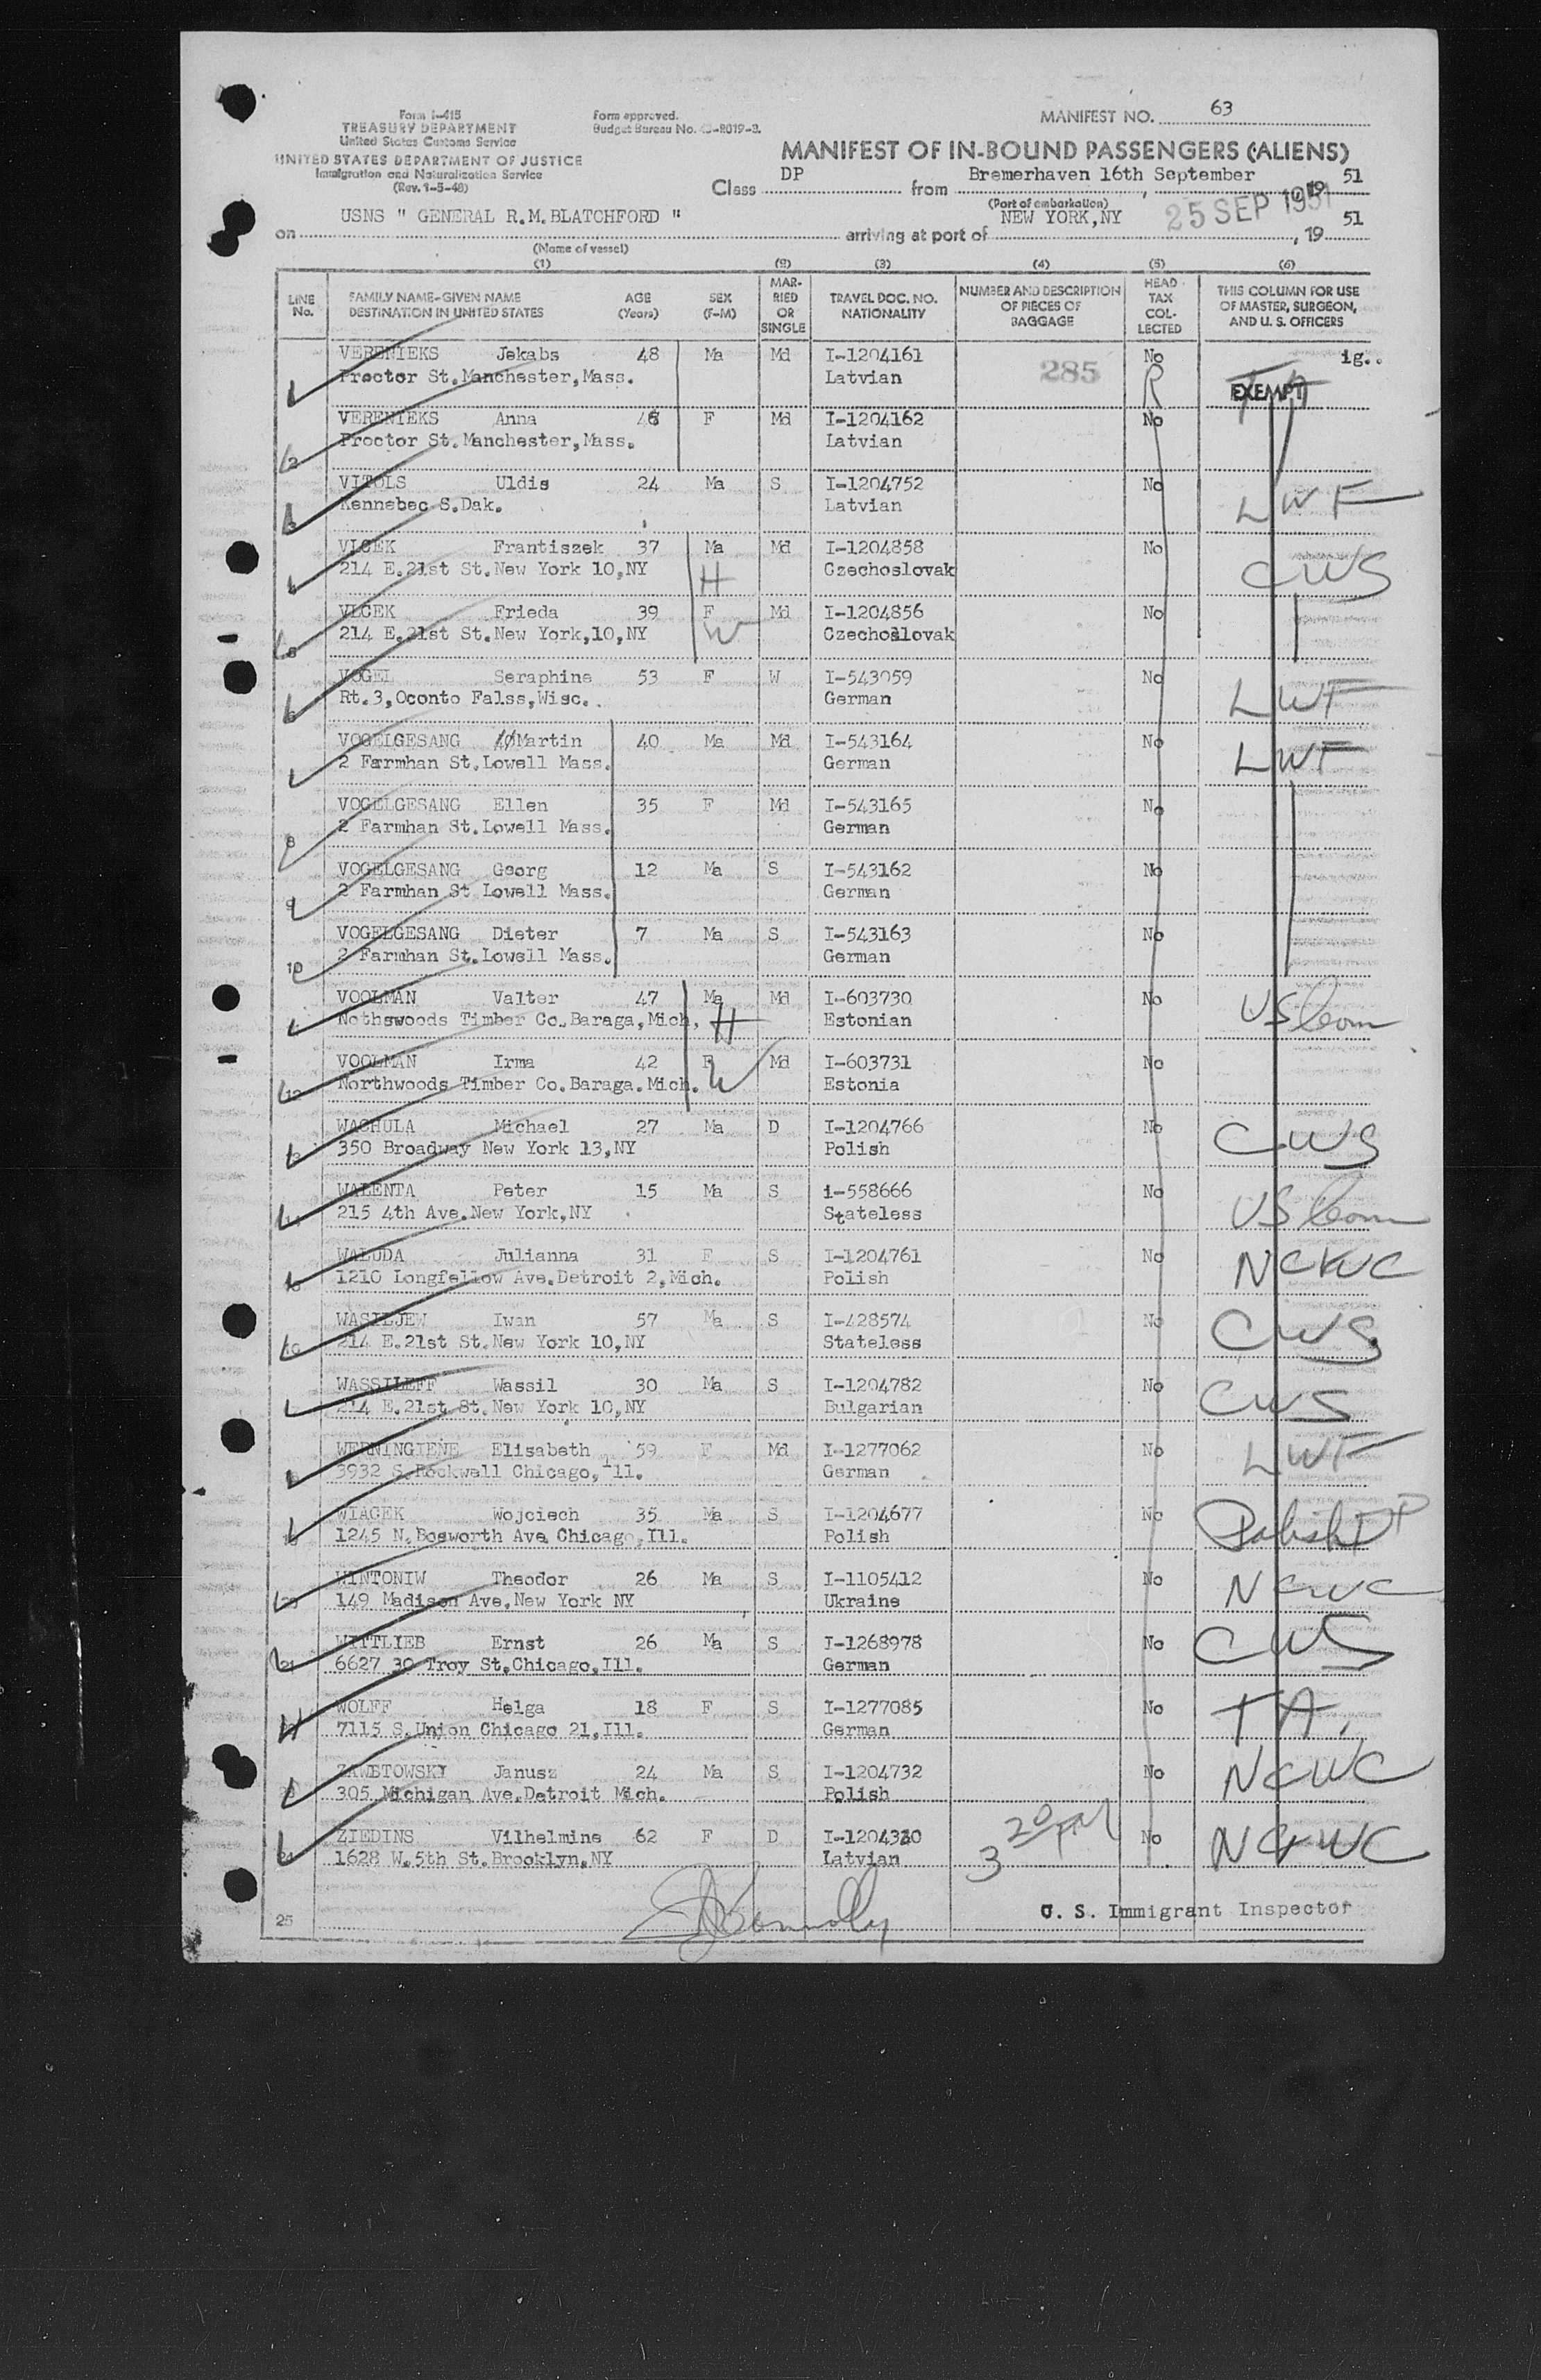 Form I-415
TREASURY DEPARTMENT
United States Customs Service
UNITED STATES DEPARTMENT OF JUSTICE
Immigration and Naturalization Service
(Rev. 1-5-48)
Form approved.
Budget Bureau No. -R019-3.
MANIFEST NO. 63
MANIFEST OF IN-BOUND PASSENGERS (ALIENS)
Class DP from Bremerhaven 16th September, 19 51
(Port of embarkation)
on USNS " GENERAL R.M.BLATCHFORD " arriving at port of NEW YORK,NY 25 SEP 1951, 19 51
(Name of vessel)
(1) (2) (3) (4) (5) (6)
LINE No. FAMILY NAME-GIVEN NAME DESTINATION IN UNITED STATES AGE (Years) SEX (F-M) MARRIED OR SINGLE TRAVEL DOC. NO. NATIONALITY NUMBER AND DESCRIPTION OF PIECES OF BAGGAGE HEAD TAX COLLECTED THIS COLUMN FOR USE OF MASTER, SURGEON, AND U. S. OFFICERS
VERENIEKS Jekabs 48 Ma Md I-1204161 285 No ig..
Proctor St.Manchester,Mass. Latvian R EXEMPT
VERENIEKS Anna F Md I-1204162 No
2 Proctor St.Manchester,Mass. Latvian
VITOLS Uldis 24 Ma S I-1204752 No
3 Kennebec S.Dak. Latvian LWF
VLCEK Frantiszek 37 Ma Md I-1204858 No
214 E.21st St.New York 10,NY H Czechoslovak CWS
VLCEK Frieda 39 F Md I-1204856 No
5 214 E.21st St.New York,10,NY W Czechoslovak
VOGEL Seraphine 53 F W I-543059 No
6 Rt.3,Oconto Falss,Wisc.. German LWF
VOGELGESANG Martin 40 Ma Md I-543164 No
2 Farmhan St.Lowell Mass. German LWF
VOGELGESANG Ellen 35 F Md I-543165 No
8 2 Farmhan St.Lowell Mass. German
VOGELGESANG Georg 12 Ma S I-543162 No
9 2 Farmhan St Lowell Mass. German
VOGELGESANG Dieter 7 Ma S I-543163 No
10 2 Farmhan St.Lowell Mass. German
VOOLMAN Valter 47 Ma Md I-603730 No
Nothswoods Timber Co.Baraga,Mich. H Estonian US Com
VOOLMAN Irma 42 F Md I-603731 No
12 Northwoods Timber Co.Baraga.Mich. W Estonia
WACHULA Michael 27 Ma D I-1204766 No
13 350 Broadway New York 13,NY Polish CWS
WALENTA Peter 15 Ma S i-558666 No
14 215 4th Ave.New York,NY Stateless US Com
WALUDA Julianna 31 F S I-1204761 No
15 1210 Longfellow Ave.Detroit 2,Mich. Polish NCWC
WASILJEW Iwan 57 Ma S I-428574 No
16 214 E.21st St.New York 10,NY Stateless CWS
WASSILEFF Wassil 30 Ma S I-1204782 No
214 E.21st St.New York 10,NY Bulgarian CWS
WERNINGIENE Elisabeth 59 F Md I-1277062 No
3932 S.Rockwell Chicago,Ill. German LWF
WIACEK Wojciech 35 Ma S I-1204677 No
19 1245 N.Bosworth Ave Chicago,Ill. Polish Polish
WINTONIW Theodor 26 Ma S I-1105412 No
20 149 Madison Ave,New York NY Ukraine NCWC
WITTLIEB Ernst 26 Ma S I-1268978 No
21 6627 30 Troy St.Chicago,Ill. German CWS
WOLFF Helga 18 F S I-1277085 No
7115 S.Union Chicago 21,Ill. German T A.
ZAWETOWSKY Janusz 24 Ma S I-1204732 No
23 305 Michigan Ave.Detroit Mich. Polish NCWC
ZIEDINS Vilhelmine 62 F D No
24 1628 W.5th St.Brooklyn,NY Latvian 3 20 PM NCWC
U. S. Immigrant Inspector
25